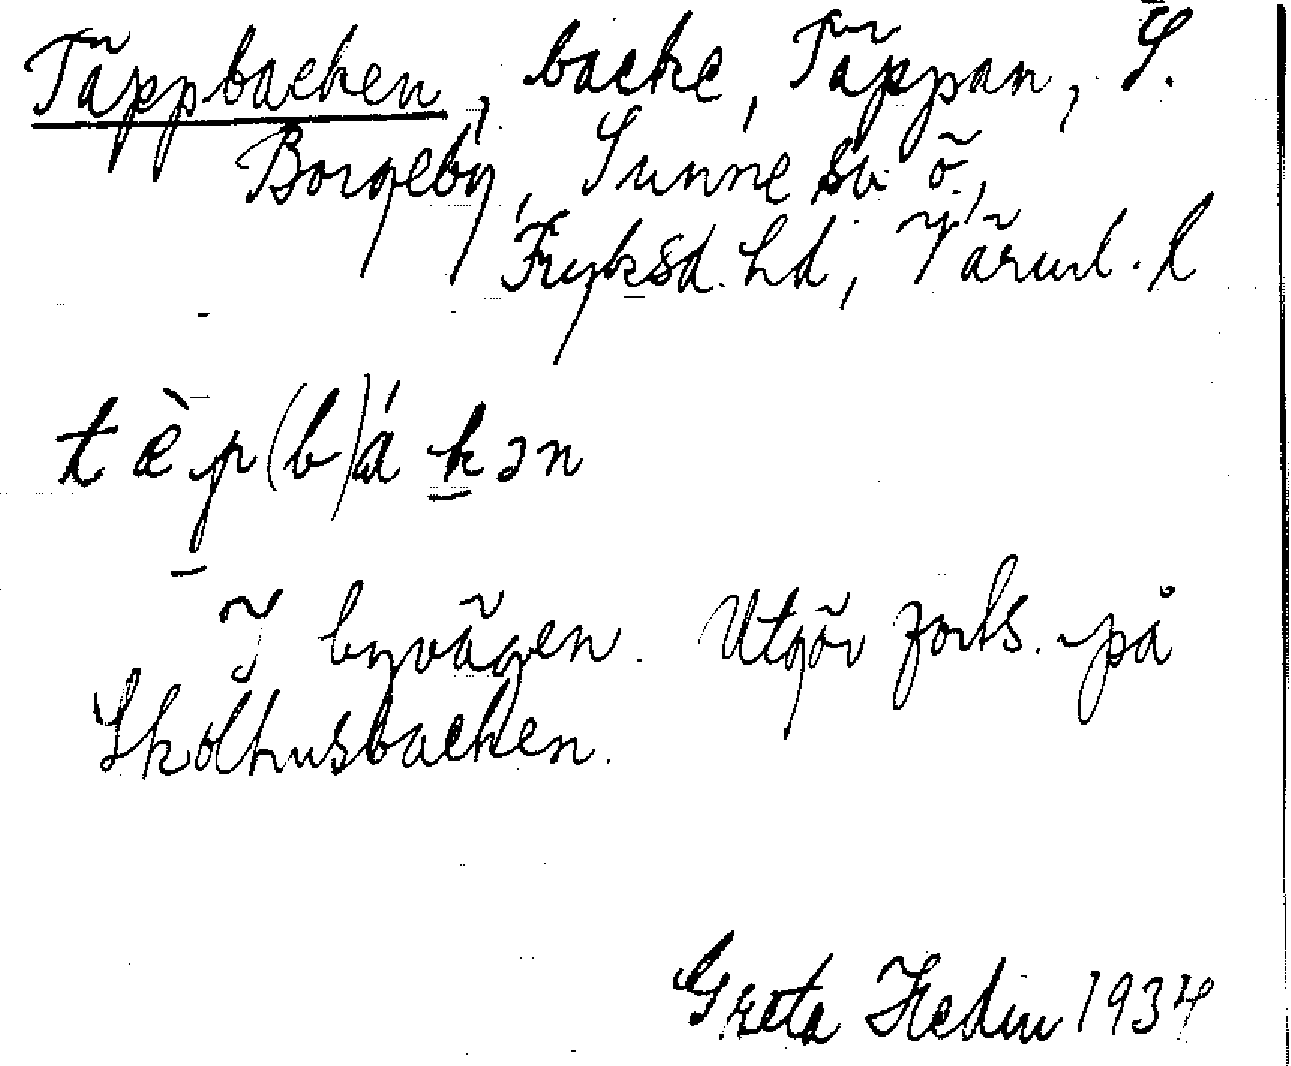 Täppbacken, backe, Täppan, S.
Borgeby, Sunne sn ö.,
Fryksd. hd, Värml. l
tæ̀p(b)ákən
I byvägen. Utgör forts. på
Skolhusbacken.
Greta Hedin 1934